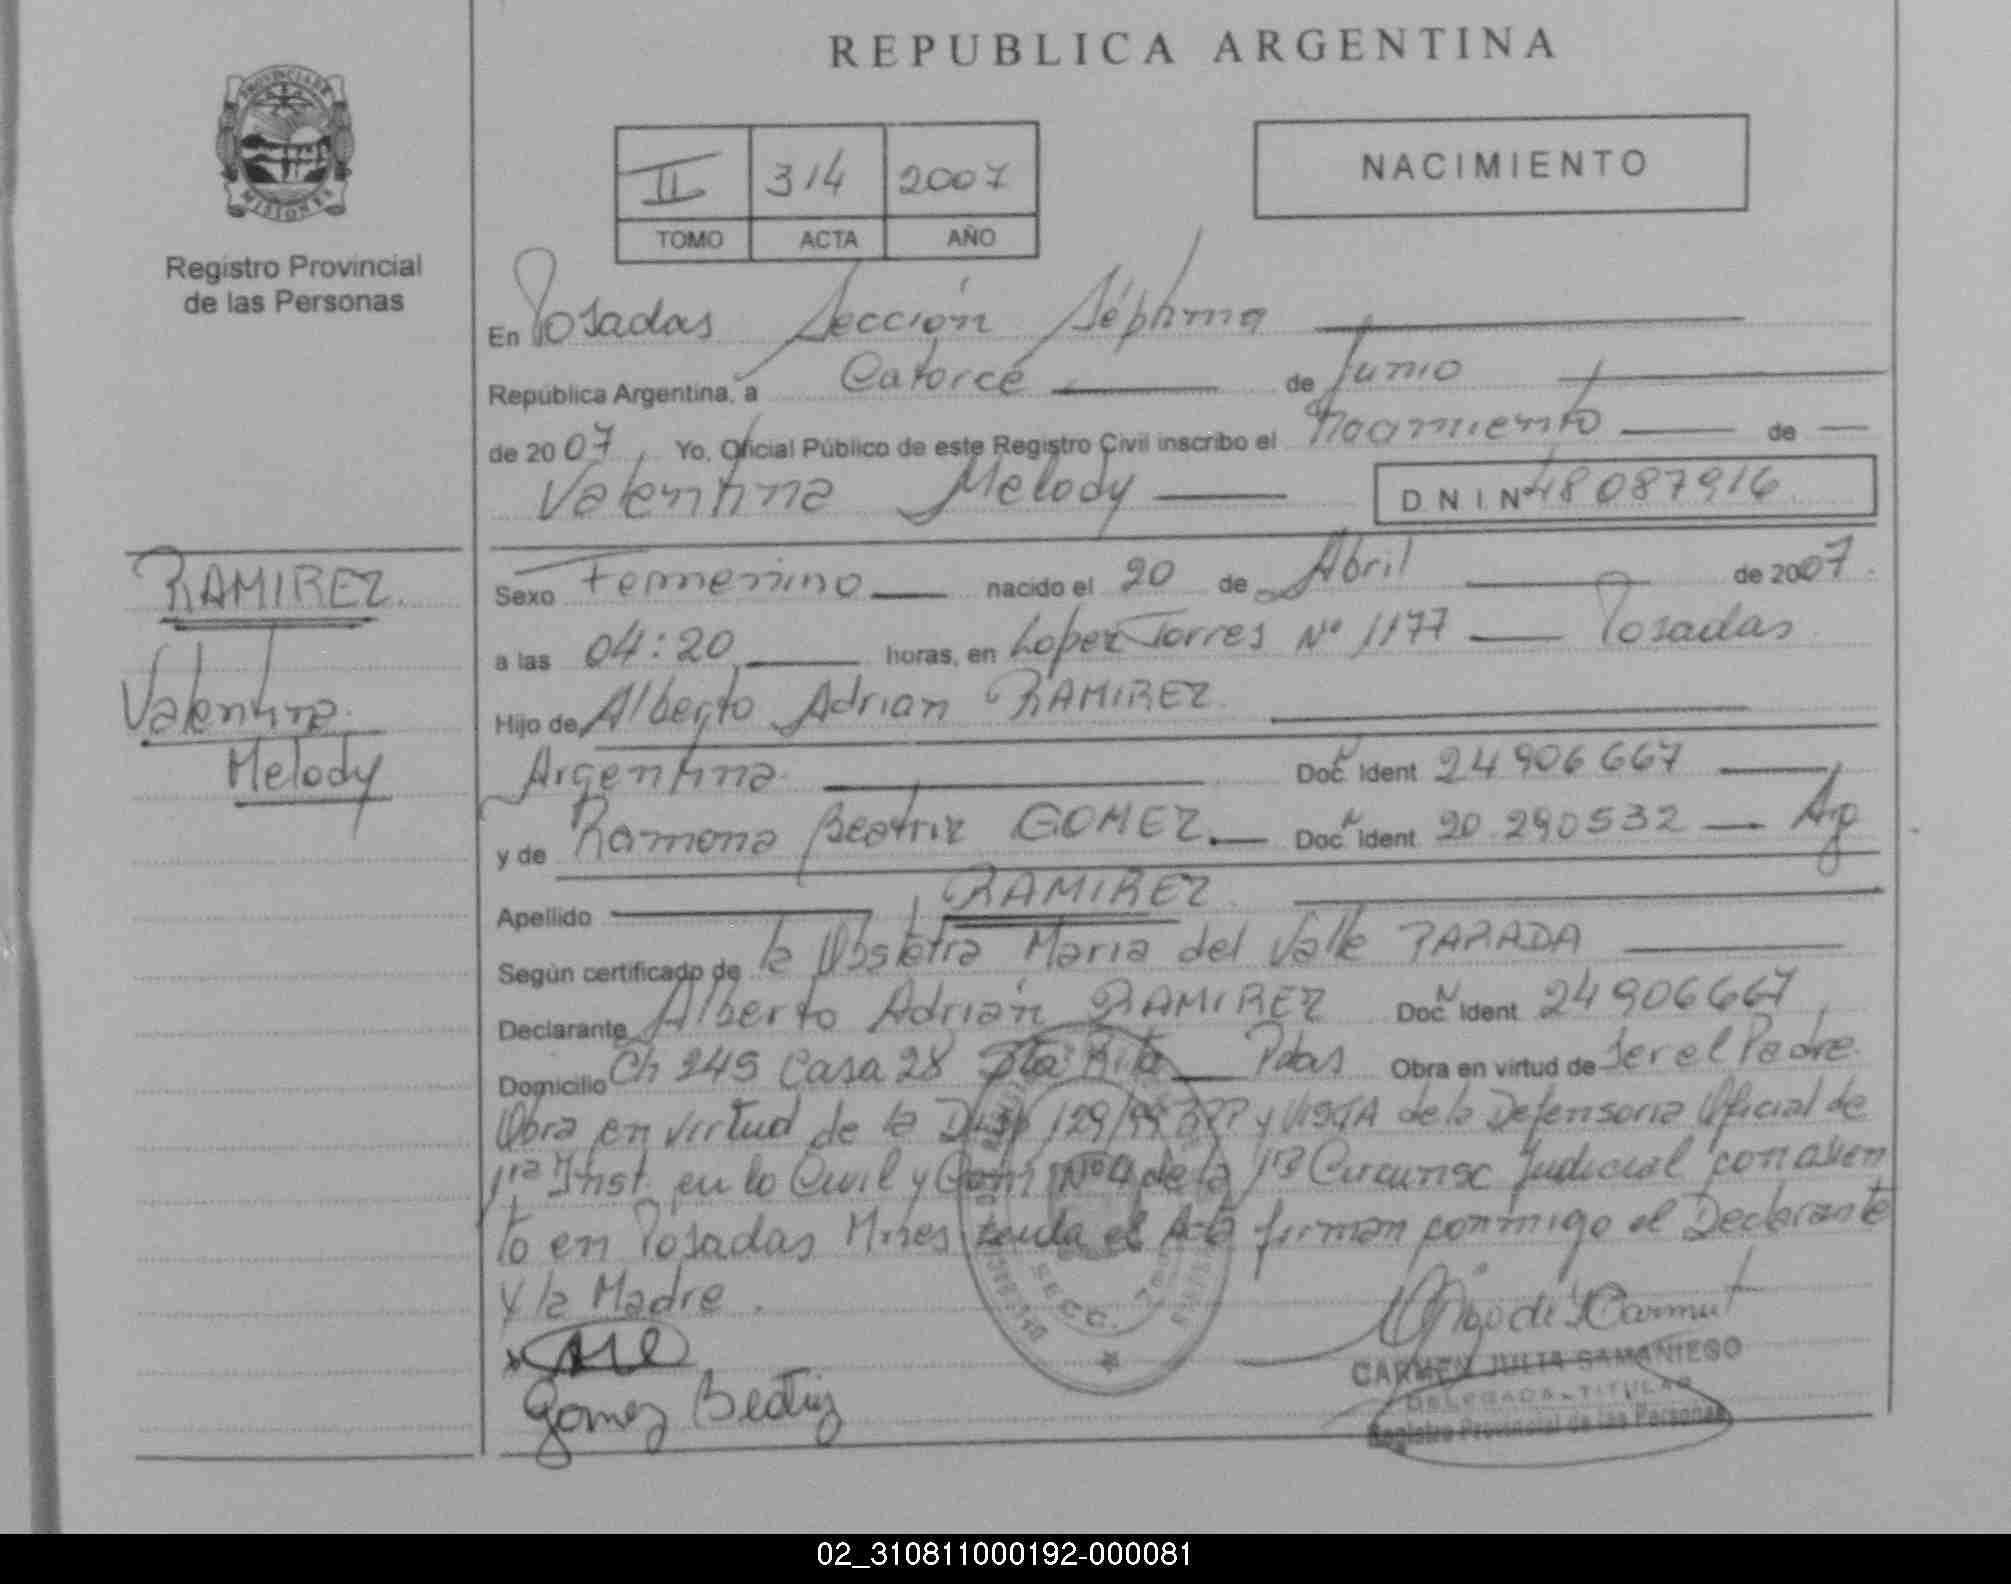 REPUBLICA ARGENTINA
PROVINCIA DE
MISIONES
Registro Provincial
de las Personas
II 314 2007
TOMO ACTA AÑO
NACIMIENTO
En Posadas Sección Séptima
República Argentina, a Catorce de Junio
de 2007, Yo, Oficial Público de este Registro Civil inscribo el Nacimiento de
Valentina Melody DNI Nº 48087916
RAMIREZ.
Valentina
Melody
Sexo Femenino nacido el 20 de Abril de 2007.
a las 04:20 horas, en Lopez Torres Nº 1177 Posadas
Hijo de Alberto Adrian RAMIREZ
Argentina Doc. Ident 24906667
y de Ramona Beatriz GOMEZ. Doc. Ident. 20.290532 Arg
Apellido RAMIREZ
Según certificado de la Obstetra Maria del Valle PARADA
Declarante Alberto Adrián RAMIREZ Doc. Ident 24906667
Domicilio Ch 245 Casa 28 Sta Rita Pdas Obra en virtud de ser el Padre.
Obra en virtud de la Disp 129/99 y VISTA de la Defensoria Oficial de
1ra Inst. en lo Civil y Com Nº 4 de la 1ra Circunsc Judicial con asien
to en Posadas Mnes leida el Acta firman conmigo el Declarante
y la Madre.
SECC.
Gomez Beatriz
CARMEN JULIA SAMANIEGO
DELEGADA TITULAR
Registro Provincial de las Personas
02_310811000192-000081